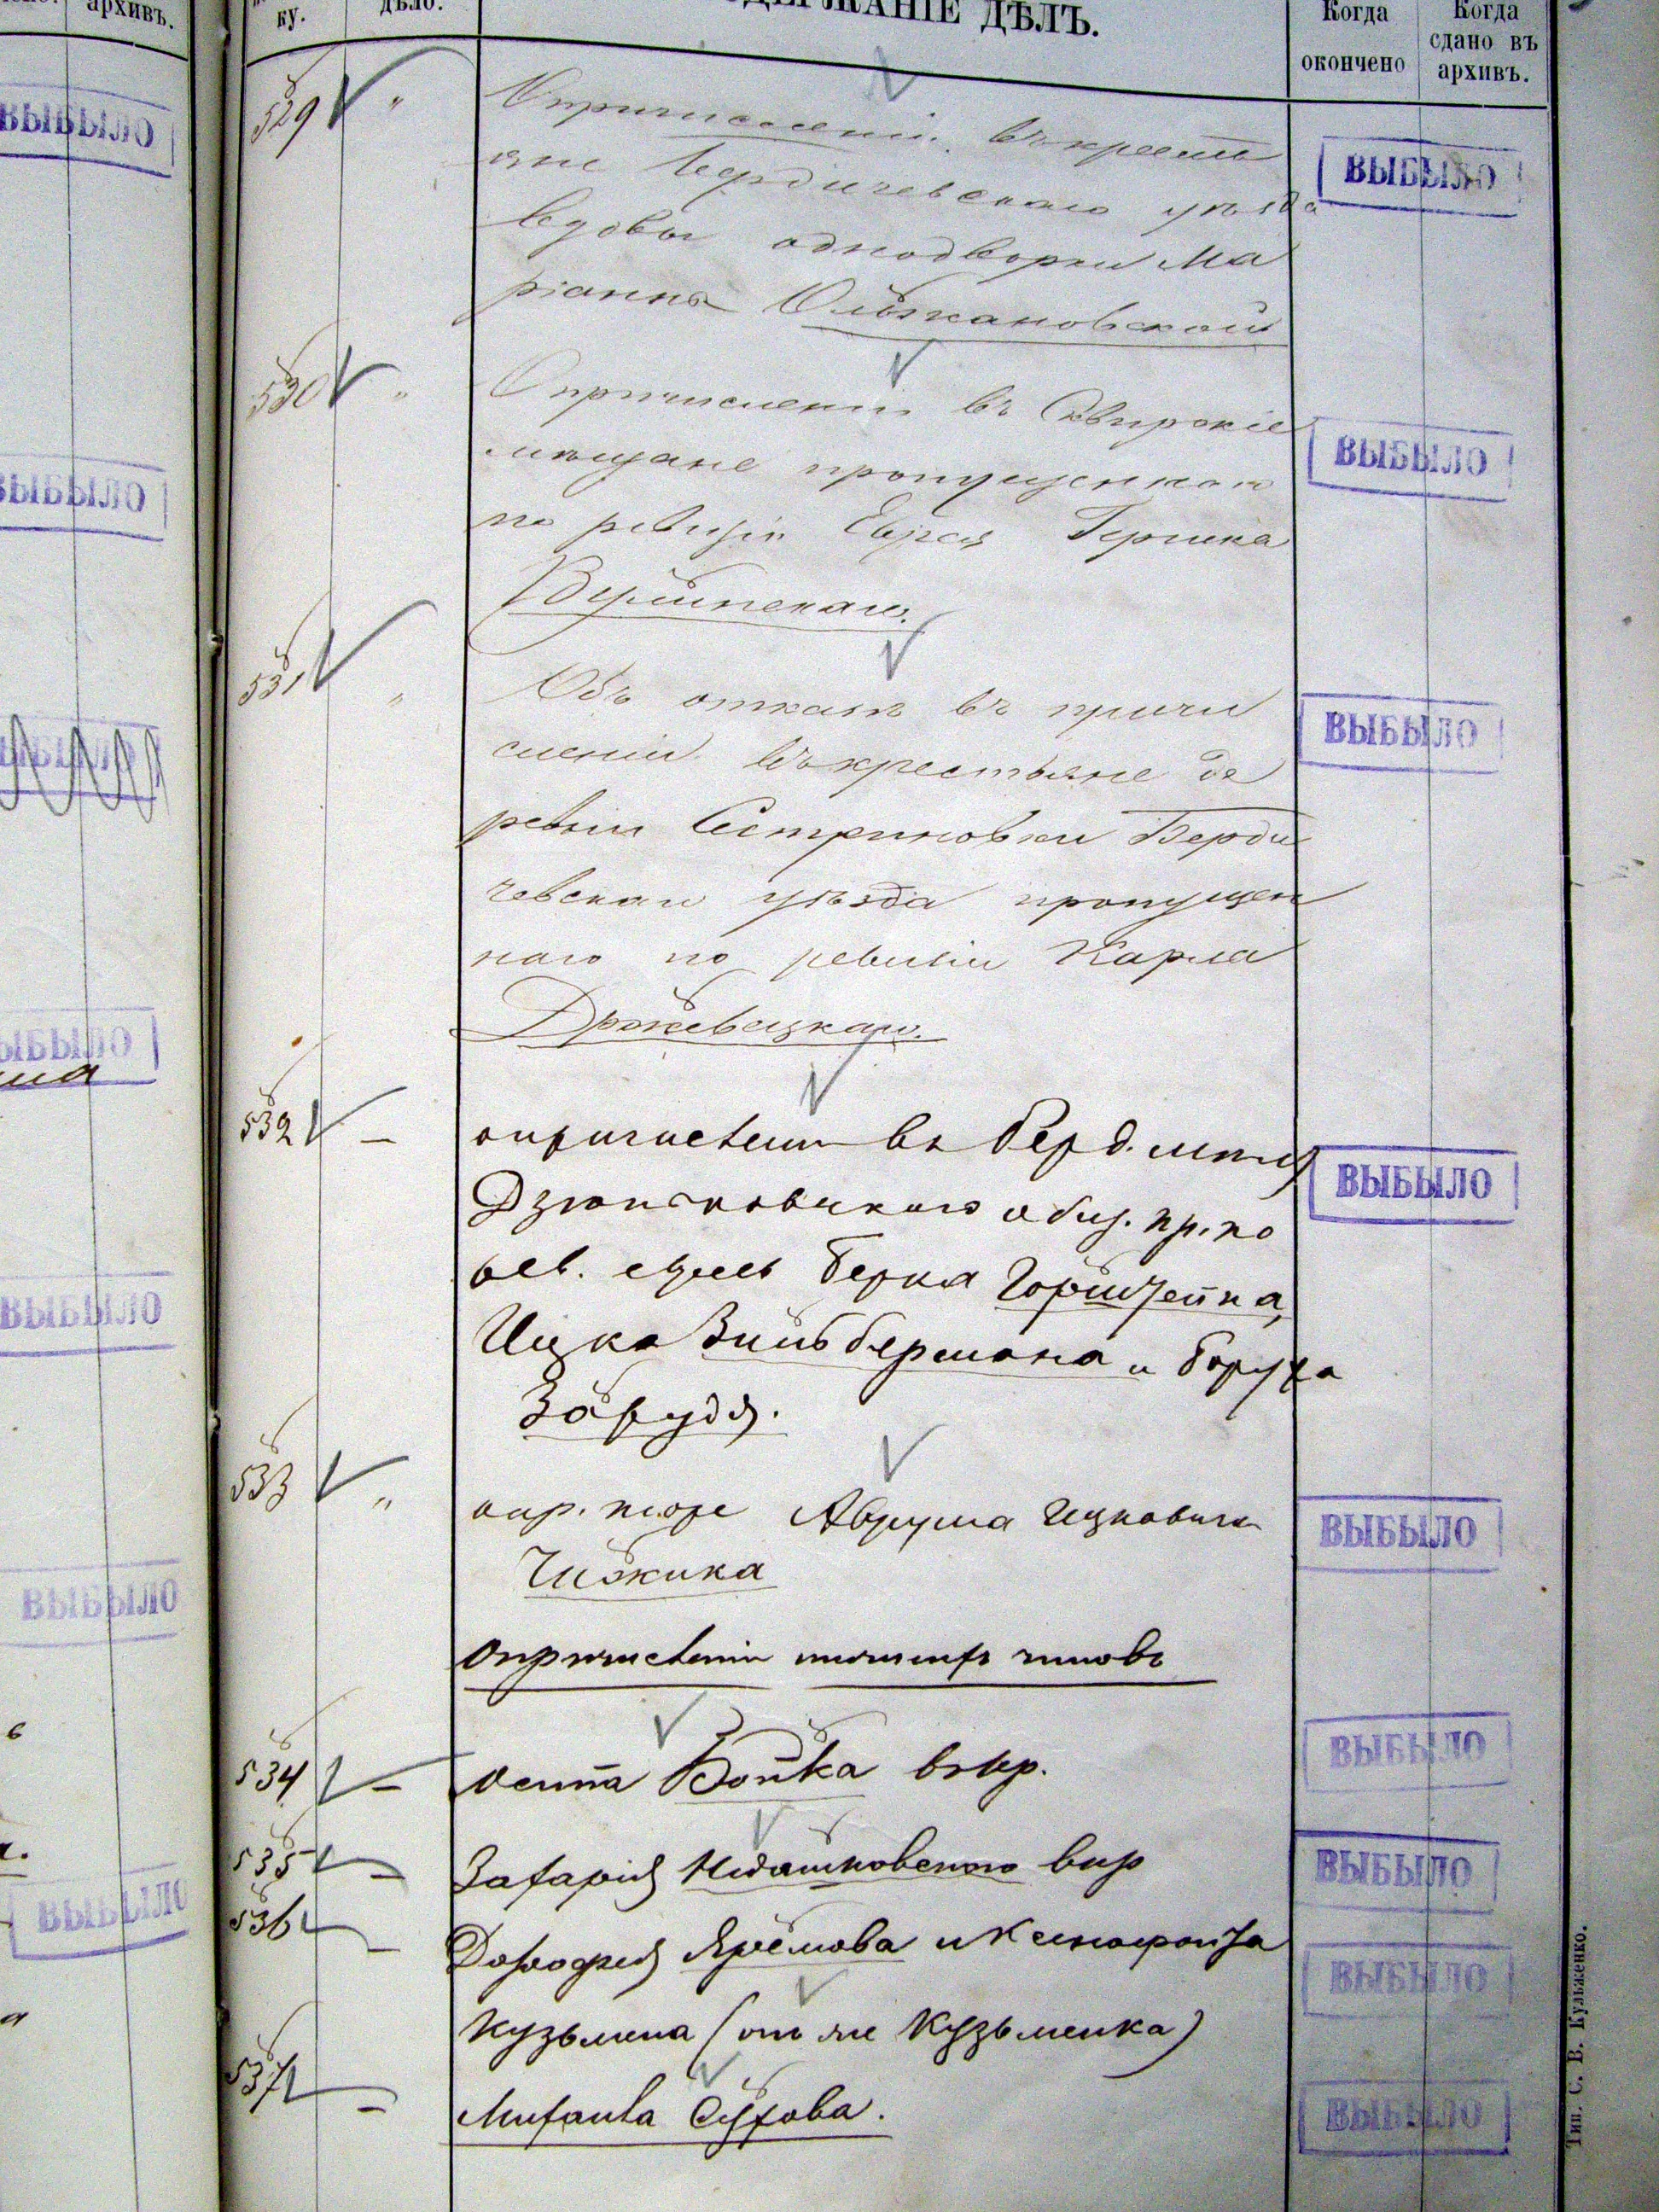 архивъ.
ку.
дѣло.
СОДЕРЖАНІЕ ДѢЛЪ.
Когда
окончено
Когда
сдано въ
архивъ.
529 "
О причисленіи въ кресть
яне Бердичевскаго уѣзда
вдовы однодворки Ма
ріанны
ВЫБЫЛО
530 "
О причисленіи въ Сквирскіе
мѣщане пропущеннаго
по ревизіи Еврея Гершка
ВЫБЫЛО
531 "
Объ отказѣ въ причи
сленіи въ крестьяне де
ревни Сестриновки Берди
чевскаго уѣзда пропущен
наго по ревизіи Карла
Држевецкаго.
ВЫБЫЛО
532 –
о причисленіи въ Берд. мѣщ
Дзюньковскаго общ. пр. по
рев. евреев Берка Горштейна,
Ицка Зильбермана и Боруха
Зарудя.
ВЫБЫЛО
533 "
о пр. тоже Аврума Ицковича
Чижика
ВЫБЫЛО
о причисленіи нижнихъ чиновъ
534 – Осипа Бойка въ кр.
ВЫБЫЛО
535 – Захарія Недашковскаго в кр
ВЫБЫЛО
536 – Дорофея Яремова и Ксенофонта
Кузьмина (он же Кузьменка)
ВЫБЫЛО
537 – Михаила Сухова.
ВЫБЫЛО
Тип. С. В. Кульженко.